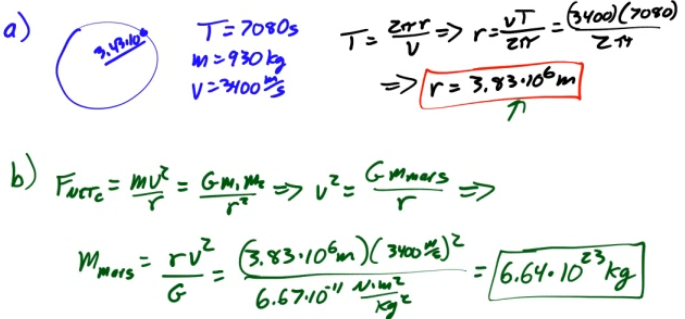 a)
3.43·10⁶
T = 7080s
m = 930 kg
v = 3400 m/s
T = 2πr/v => r = vT/2π = (3400)(7080)/2π
=> r = 3.83·10⁶ m
↑
b) F_NETc = mv²/r = Gm₁m₂/r² => v² = Gm_mars/r =>
m_mars = rv²/G = (3.83·10⁶m)(3400 m/s)²/6.67·10⁻¹¹ N·m²/kg² = 6.64·10²³ kg